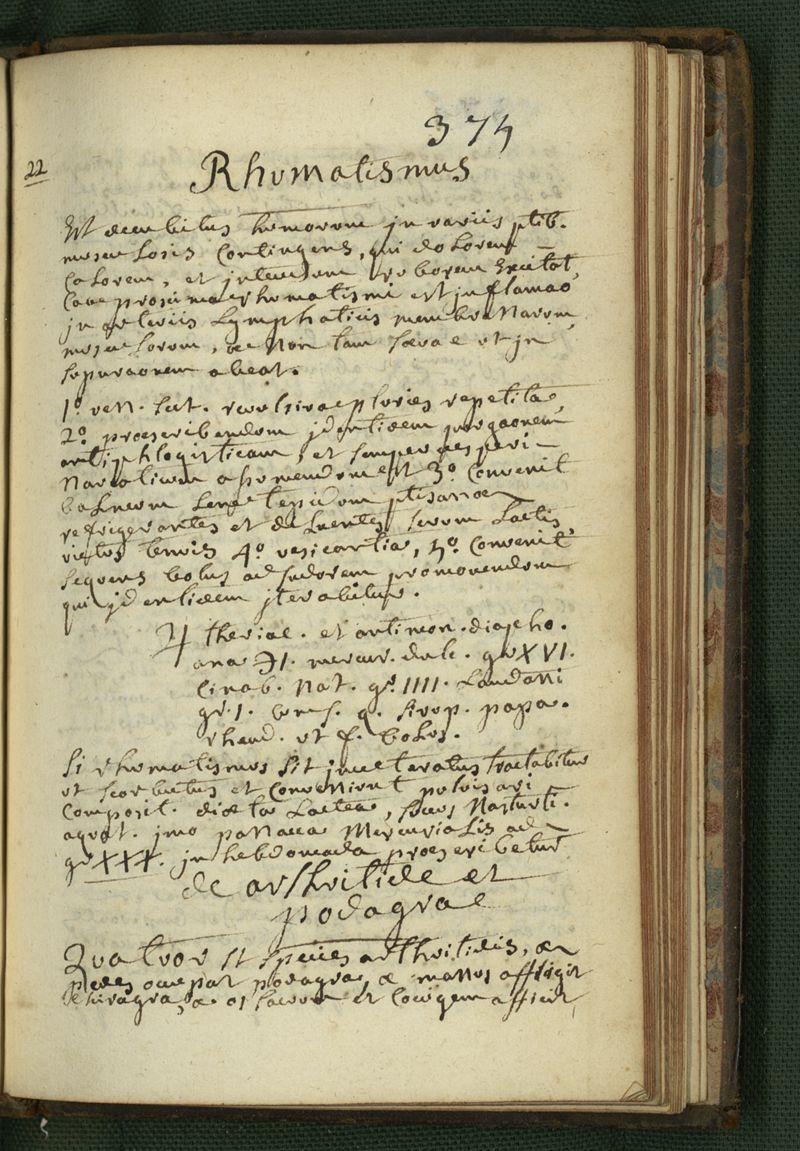 375
22
Rhumatismus
Est decubitus humorum in variis ptib.
musculosis contingens, qui dolorem
calorem, et ruborem Excitat,
Causa proxima rhumatismi est inflamao
in arteriis Lymphaticis membranarum
musculorum, non tam sæva ut in
supuraonem abeat.
1º. ven. sect. revulsivae pluries repetita,
2º. præscribendum identidem purgaonem
antiphlogisticam, et semper
narcoticum est 3º. Convenit
balneum tepidum ptisanæ
refrigerantes et diluentes, serum Lactis,
victus tenuis 4º. vesicantia, 5º. Convenit
sequens bolus ad sudorem promovendum
qui identidem iterabitur.
♃ theriac. et antimon. diapho.
ana ℈I. mercur. dulc. gr XVI.
Cinab. Nat. gr. IIII. Laudani
gr. I. cum s. q. sirop. papa.
rhead. ut f. bolus.
Si rhumatismus sit inveteratus tractabitur
ut scorbutus et Conveniunt pulvis ari
composit. diæta Lactea, succus Nasturti.
aquat. imo panacea Mercurialis ad
gr XXX. in hebdomada præscribetur
de arthritide et
podagra
Quatuor st species arthritidis,
pedes occupat podagra, manus affligit
chiragra, os sacrum et coxigem afficit